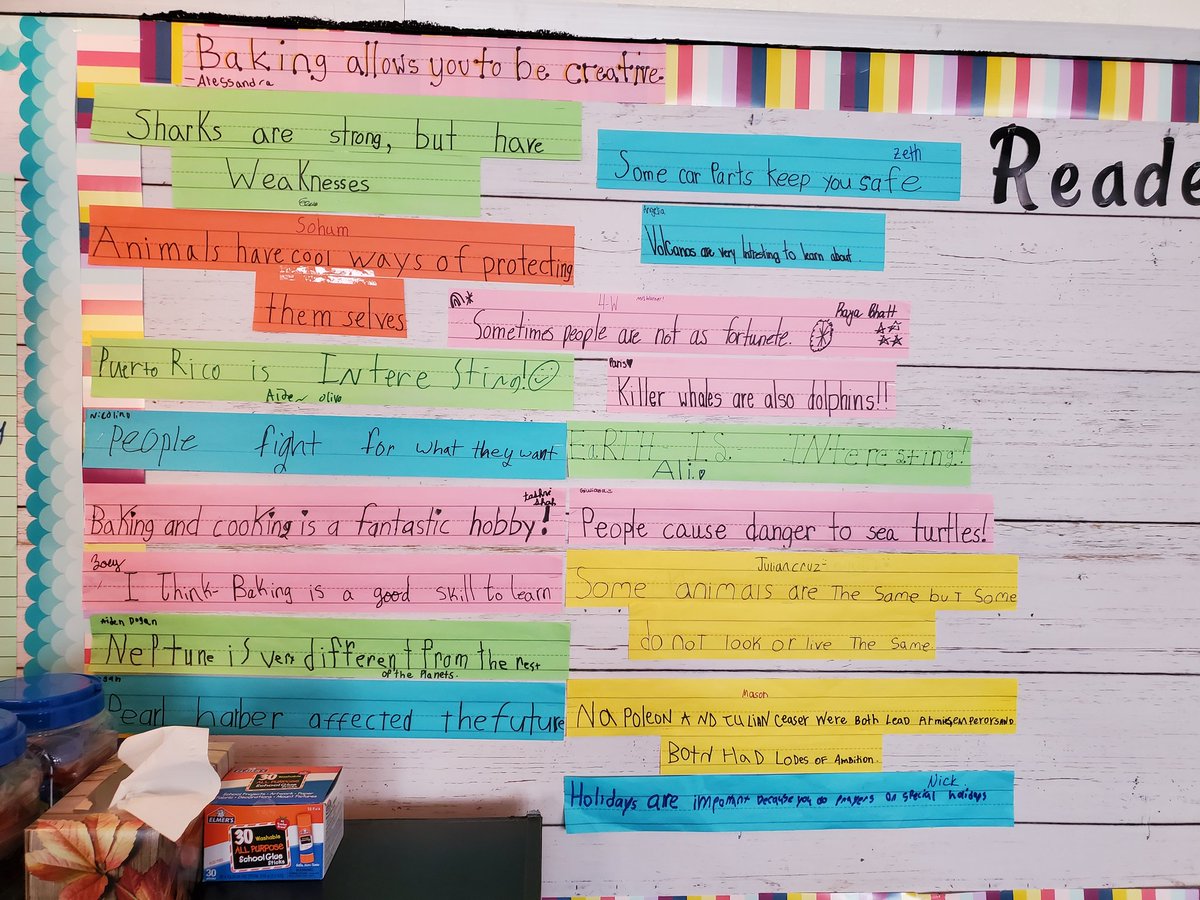 Baking allows you to be creative.
-Alessandra
Sharks are strong, but have
Weaknesses
Sohum
Animals have cool ways of protecting
them selves
Puerto Rico is Intere Sting!
Aiden olivo
Nicolino
People fight for what they want
Tashvi
Shah
Baking and cooking is a fantastic hobby!
Zoey
I Think- Baking is a good skill to learn
Aiden Dogan
Neptune is very different from the rest
of the Planets.
Pearl harber affected the future
zeth
Some car Parts keep you safe
Angelia
Volcanos are very Intresting to learn about.
4-W
Raya Bhatt
Sometimes people are not as fortunete.
Paris
Killer whales are also dolphins!!
EaRTH IS INtere sting!
Ali
Giuliana
People cause danger to sea turtles!
Julian cruz-
Some animals are The Same buT Some
do noT look or live The Same
Mason
NaPoleon AND JULIAN Ceaser Were BoTH Lead Atmies,emperors AND
BOTH HaD LoDes of Ambition.
Nick
Holidays are impontant because you do prayers on special holidays
Reade
ELMER'S
30 Washable
ALL PURPOSE
School Glue
Sticks
30